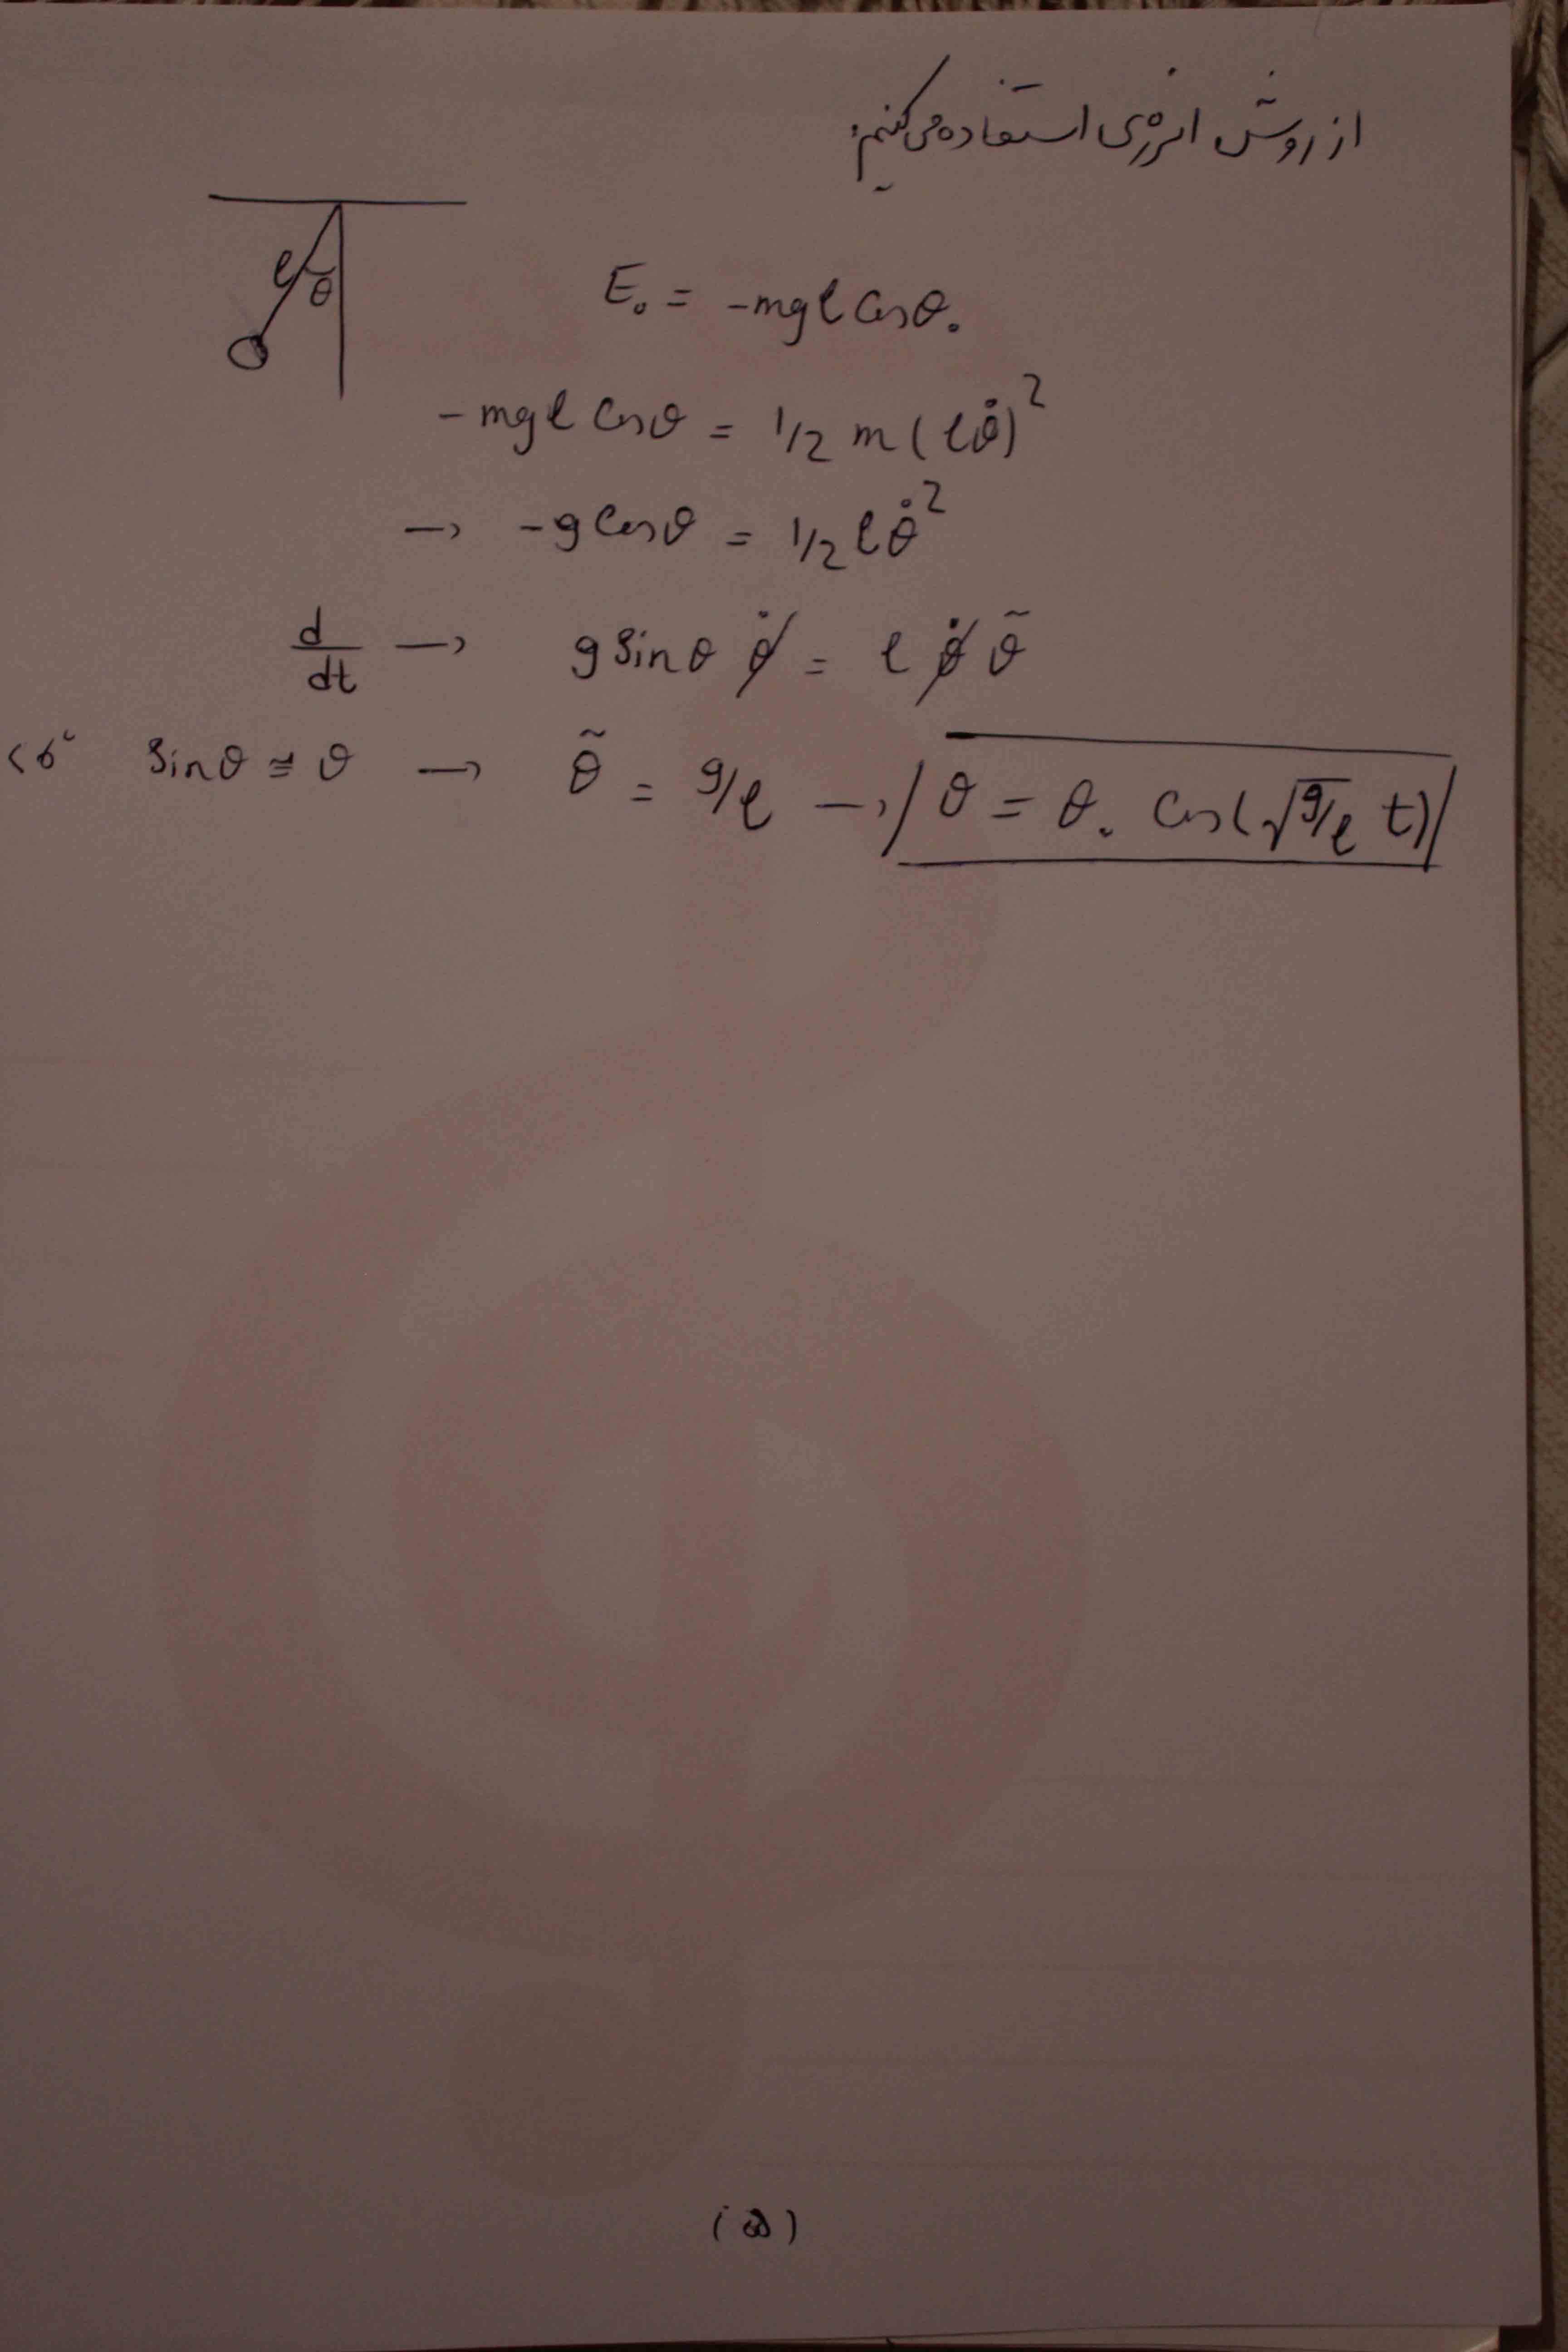 از روش انرژی استفاده می‌کنیم:
l θ
E₀ = -mgl cosθ₀
-mgl cosθ = 1/2 m(lθ̇)²
→ -g cosθ = 1/2 lθ̇²
d/dt → g sinθ θ̇ = l θ̇ θ̃
<6° sinθ ≅ θ → θ̃ = g/l → θ = θ₀ cos(√g/l t)
(۵)